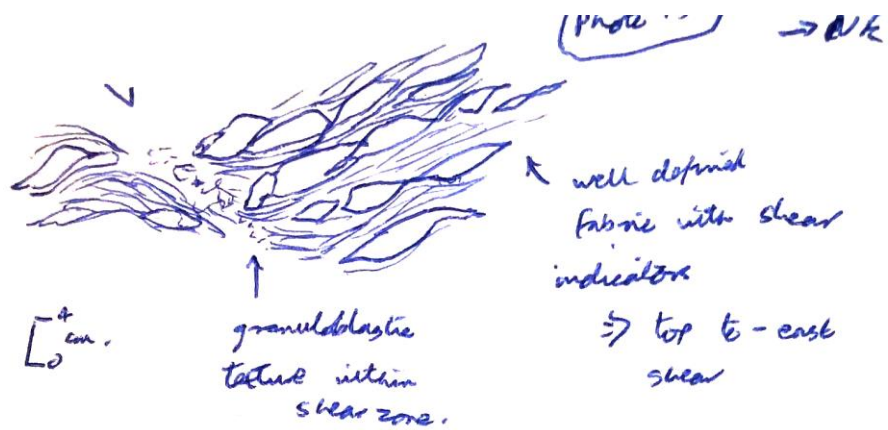 Photo
→ NE
well defined
fabric with shear
indicators
⇒ top to-east
shear
granuloblastic
texture within
shear zone.
4
cm.
0